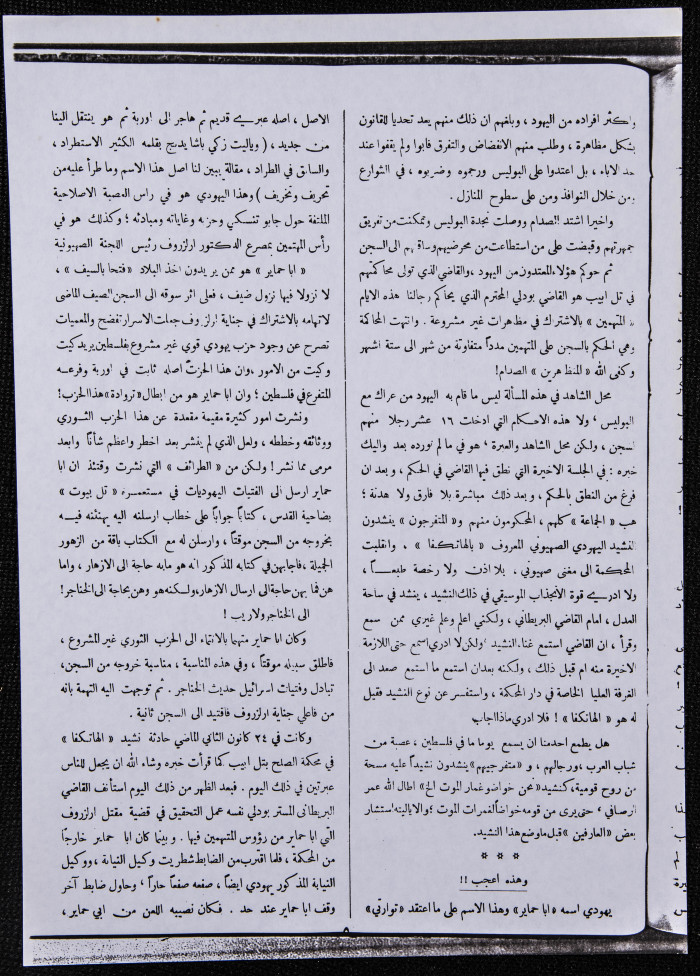 واكثر افراده من اليهود ، وبلغهم ان ذلك منهم يعد تحديا للقانون
بشكل مظاهرة ، وطلب منهم الانفضاض والتفرق فابوا ولم يقفوا عند
حد الاباء ، بل اعتدوا على البوليس ورجموه وضربوه ، في الشوارع
ومن خلال النوافذ ومن على سطوح المنازل .
واخيرا اشتد الصدام ووصلت نجدة البوليس وتمكنت من تفريق
جمهرتهم وقبضت على من استطاعت من محرضيهم وساقتهم الى السجن
ثم حوكم هؤلاء المعتدون من اليهود ، والقاضي الذي تولى محاكمتهم
في تل ابيب هو القاضي بودلي المحترم الذي يحاكم رجالنا هذه الايام
« المتهمين » بالاشتراك في مظاهرات غير مشروعة . وانتهت المحاكمة
وهي الحكم بالسجن على المتهمين مدداً متفاوتة من شهر الى ستة اشهر
وكفى الله « المتظاهرين » الصدام !
محل الشاهد في هذه المسألة ليس ما قام به اليهود من عراك مع
البوليس ، ولا هذه الاحكام التي ادخلت ١٦ عشر رجلا منهم
السجن ، ولكن محل الشاهد والعبرة ، هو في ما لم نورده بعد واليك
خبره : في الجلسة الاخيرة التي نطق فيها القاضي في الحكم ، وبعد ان
فرغ من النطق بالحكم ، وبعد ذلك مباشرة بلا فارق ولا هدنة ؛
هب « الجماعة » كلهم ، المحكومون منهم و« المتفرجون » ينشدون
النشيد اليهودي الصهيوني المعروف « بالهاتكفا » . وانقلبت
المحكمة الى مغنى صهيوني . بلا اذن ولا رخصة طبعـــا ،
ولا ادري قوة الانجذاب الموسيقي في ذلك النشيد ، ينشد في ساحة
العدل ، امام القاضي البريطاني ، ولكني اعلم وعلم غيري ممن سمع
وقرأ ، ان القاضي استمع غناء النشيد ولكن لا ادري اسمع حتى اللازمة
الاخيرة منه ام قبل ذلك ، ولكنه بعد ان استمع ما استمع صعد الى
الغرفة العليا الخاصة في دار المحكمة ، واستفسر عن نوع النشيد فقيل
له هو « الهاتكفا » ! فلا ادري ماذا اجاب
هل يطمع احدنا ان يسمع يوما ما في فلسطين ، عصبة من
شباب العرب ، ورجالهم ، و « متفرجيهم » ينشدون نشيداً عليه مسحة
من روح قومية ، كنشيد « نحن خواضو غمار الموت الخ » اطال الله عمر
الرصافي ، حتى يرى من قومه خواضاً لغمرات الموت ؛ والا ياليته استشار
بعض « العارفين » قبل ما وضع هذا النشيد .
* * *
وهذه أعجب !!
يهودي اسمه « ابا حماير » وهذا الاسم على ما اعتقد « توارتي »
الاصل ، اصله عبري قديم ثم هاجر الى اوربة ثم هو ينتقل الينا
من جديد ، ( وياليت زكي باشا يدبج بقلمه الكثير الاستطراد ،
والسابق في الطراد ، مقالة يبين لنا اصل هذا الاسم وما طرأ عليه من
تحريف وتخريف ) وهذا اليهودي هو في راس العصبة الاصلاحية
الملتفة حول جابوتنسكي وحزبه وغاياته ومبادئه ؛ وكذلك هو في
رأس المهتمين بمصرع الدكتور ارلزروف رئيس اللجنة الصهيونية
« ابا حماير » هو ممن يريدون اخذ البلاد « فتحا بالسيف » ،
لا نزولا فيها نزول ضيف ، فعلى اثر سوقه الى السجن الصيف الماضي
لاتهامه بالاشتراك في جناية ارلزروف جعلت الاسرار تفضح والمعميات
تصرح عن وجود حزب يهودي قوي غير مشروع بفلسطين يريد كيت
وكيت من الامور ، وان هذا الحزب اصله ثابت في اوربة وفرعه
المتفرع في فلسطين ؛ وان ابا حماير هو من ابطال « تروادة » هذا الحزب !
ونشرت امور كثيرة مقيمة مقعدة عن هذا الحزب الثوري
ووثائقه وخططه ، ولعل الذي لم ينشر بعد اخطر واعظم شأنا وابعد
مرمى مما نشر ! ولكن من « الطرائف » التي نشرت وقتئذ ان ابا
حماير ارسل الى الفتيات اليهوديات في مستعمرة « تل بيوت »
بضاحية القدس ، كتاباً جواباً على خطاب ارسلنه اليه يهنئنه فيـه
بخروجه من السجن موقتاً ، وارسلن له مع الكتاب باقة من الزهور
الجميلة ، فاجابهن في كتابه المذكور انه هو مابه حاجة الى الازهار ، واما
هن فما بهن حاجة الى ارسال الازهار ، ولكنه هو وهن بحاجة الى الخناجر !
الى الخناجر ولا ريب !
وكان ابا حماير متهما بالانتماء الى الحزب الثوري غير المشروع ،
فاطلق سبيله موقتاً ، وفي هذه المناسبة ، مناسبة خروجه من السجن ،
تبادل وفتيات اسرائيل حديث الخناجر . ثم توجهت اليه التهمة بانه
من فاعلي جناية ارلزروف فاقتيد الى السجن ثانية .
وكانت في ٢٤ كانون الثاني الماضي حادثة نشيد « الهاتكفا »
في محكمة الصلح بتل ابيب كما قرأت خبره وشاء الله ان يجعل للناس
عبرتين في ذلك اليوم . فبعد الظهر من ذلك اليوم استأنف القاضي
البريطاني المستر بودلي نفسه عمل التحقيق في قضية مقتل ارلزروف
التي ابا حماير من رؤوس المتهمين فيها . وبينما كان ابا حماير خارجاً
من المحكمة ، فلما اقترب من الضابط شطريت وكيل النيابة ، ووكيل
النيابة المذكور يهودي ايضاً ، صفعه صفعاً حاراً ، وحاول ضابط آخر
وقف ابا حماير عند حد . فكان نصيبه اللعن من ابي حماير ،
٥